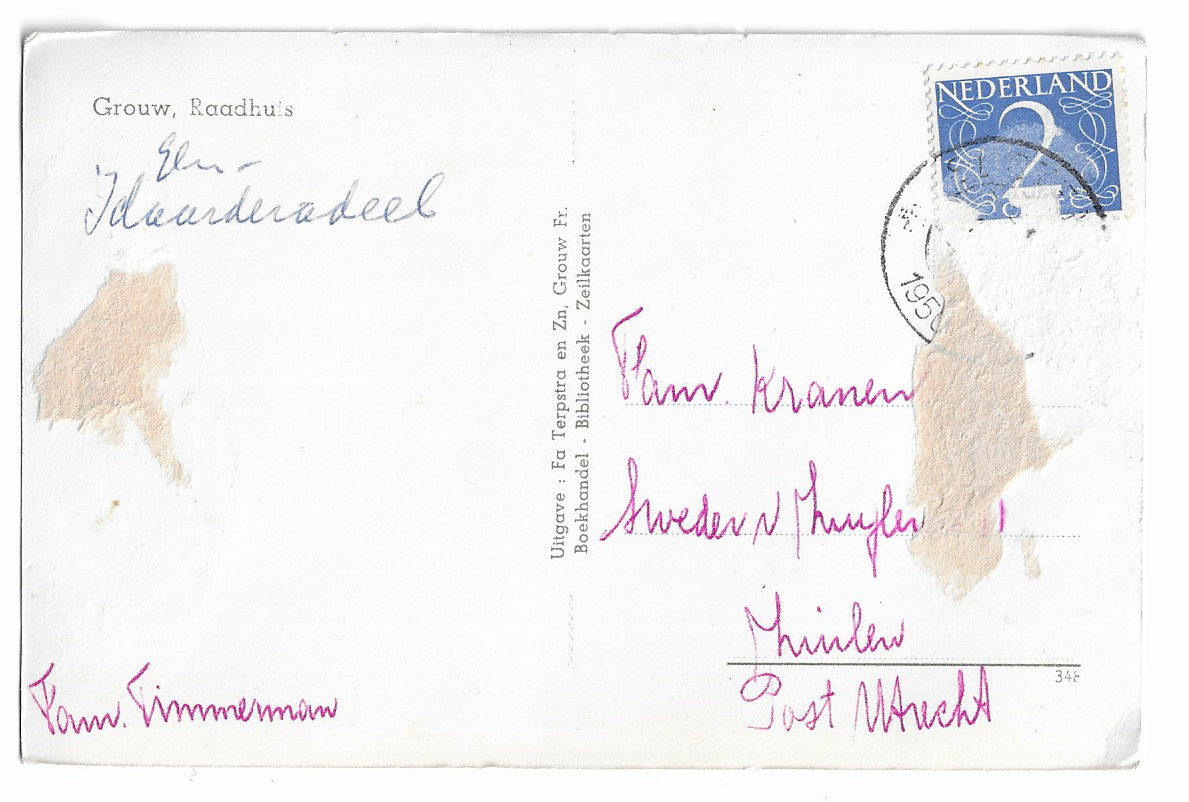 Grouw, Raadhuis
Idaarderadeel
Uitgave : Fa Terpstra en Zn, Grouw Fr.
Boekhandel - Bibliotheek - Zeilkaarten
NEDERLAND
2
195
Fam. Kranen
Sweder v
Zuilen
348
Post Utrecht
Fam. Timmerman